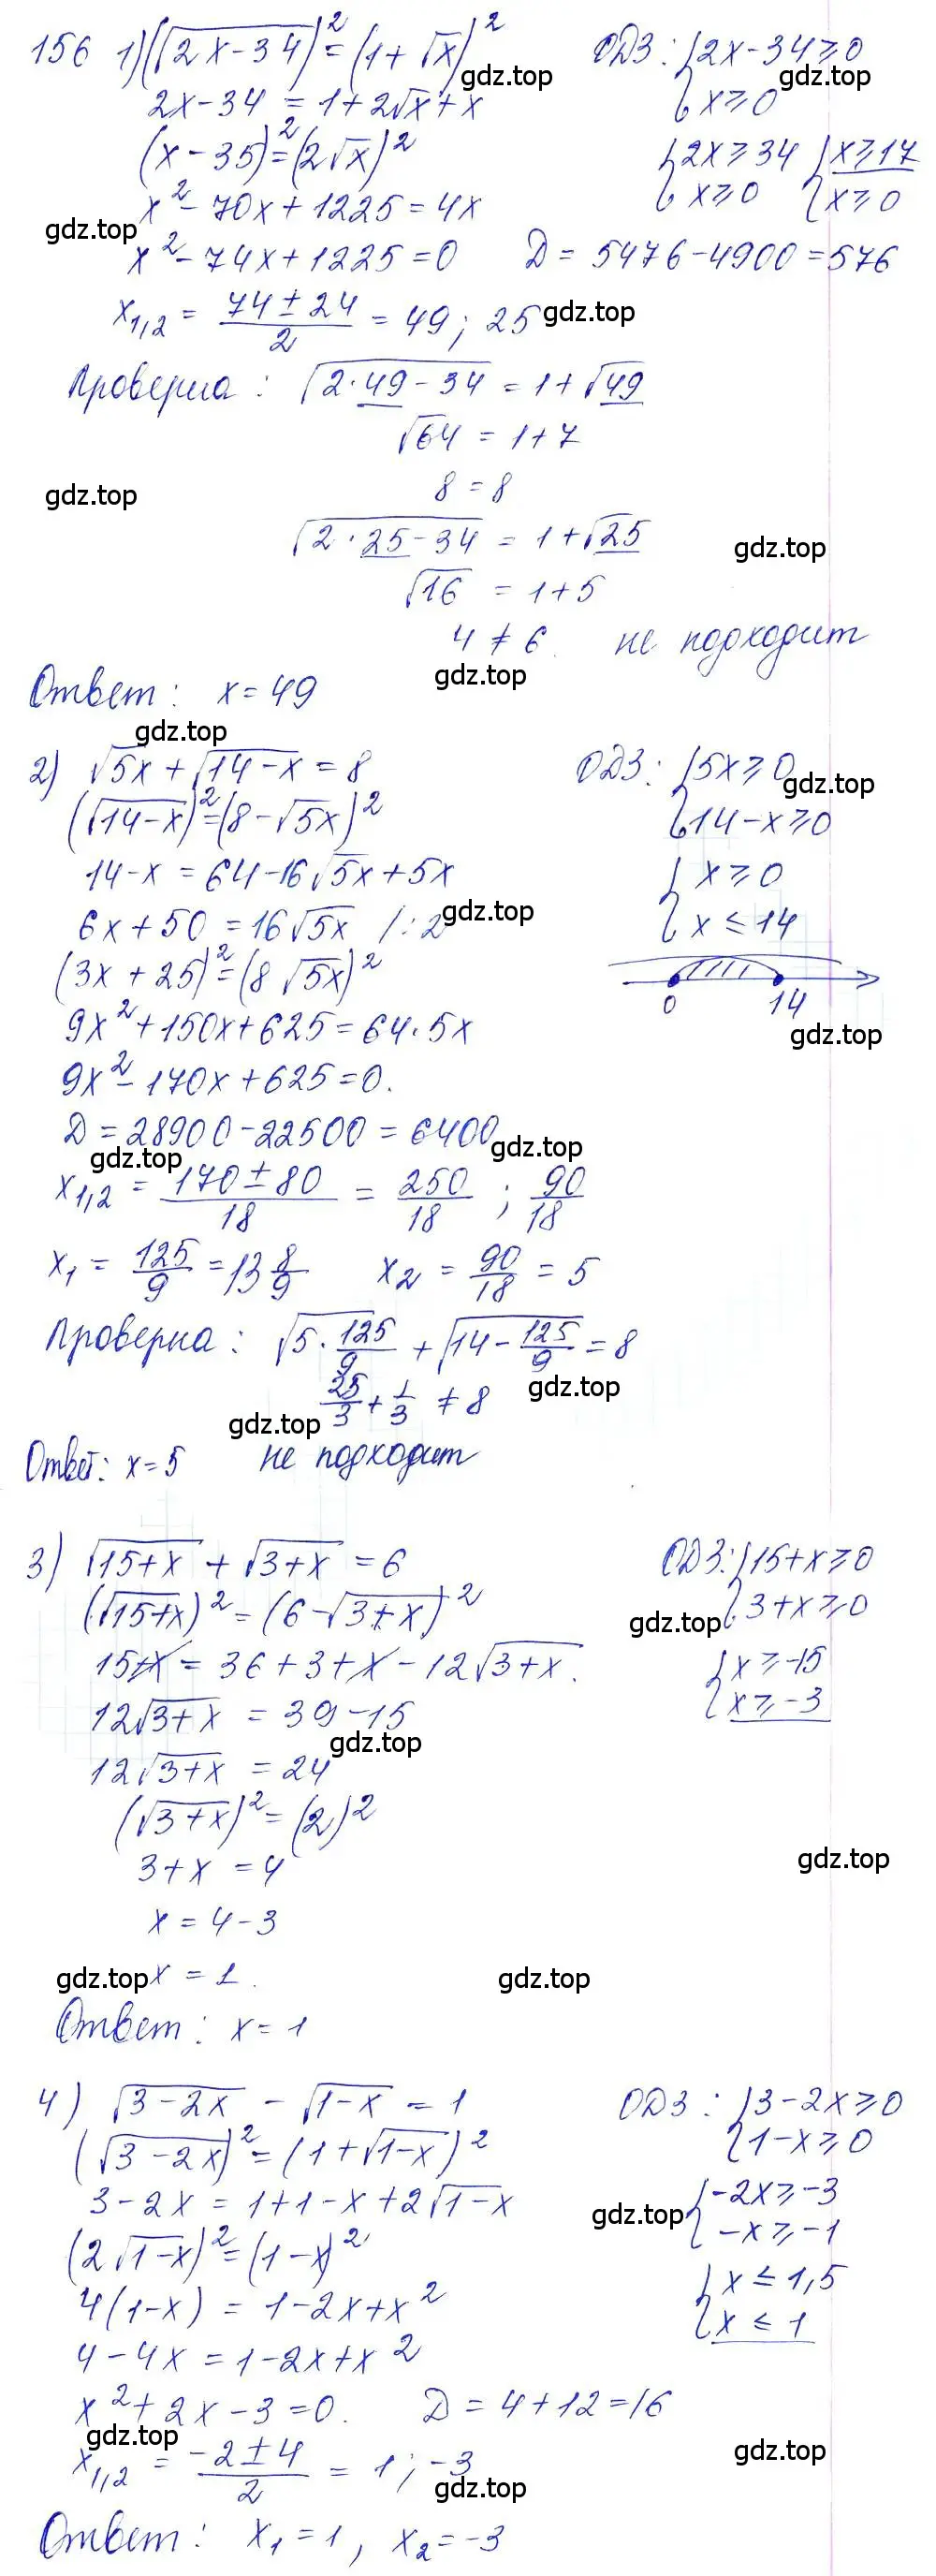 156 1) (√(2x-34))² = (1+√x)² ОДЗ: { 2x-34≥0
gdz.top gdz.top
2x-34 = 1+2√x+x { x≥0
(x-35)² = (2√x)² { 2x≥34 { x≥17
x²-70x+1225=4x { x≥0 { x≥0
gdz.top
x²-74x+1225=0 D = 5476-4900=576
x₁,₂ = (74±24)/2 = 49; 25 gdz.top
Проверка: √(2·49-34) = 1+√49
√64 = 1+7
8 = 8
gdz.top
√(2·25-34) = 1+√25 gdz.top
√16 = 1+5
4 ≠ 6 не подходит
gdz.top
Ответ: x=49
gdz.top
2) √5x + √(14-x) = 8 ОДЗ: { 5x≥0
gdz.top
(√(14-x))² = (8-√5x)² { 14-x≥0
14-x = 64-16√5x+5x { x≥0
6x+50 = 16√5x /:2 gdz.top { x≤14
(3x+25)² = (8√5x)²
0 14
9x²+150x+625=64·5x gdz.top
9x²-170x+625=0.
D = 28900-22500 = 6400 gdz.top
gdz.top
x₁,₂ = (170±80)/18 = 250/18 ; 90/18
x₁ = 125/9 = 13 8/9 x₂ = 90/18 = 5
Проверка: √(5·125/9) + √(14-125/9) = 8
25/3 + 1/3 ≠ 8 gdz.top
gdz.top
Ответ: x=5 не подходит
3) √(15+x) + √(3+x) = 6 ОДЗ: { 15+x≥0
(√(15+x))² = (6-√(3+x))² gdz.top { 3+x≥0
15+x = 36+3+x-12√(3+x). { x≥-15
12√(3+x) = 39-15 { x≥-3
gdz.top
12√(3+x) = 24
(√(3+x))² = (2)²
3+x = 4 gdz.top
x = 4-3
gdz.top x = 1. gdz.top
Ответ: x=1
4) √(3-2x) - √(1-x) = 1 ОДЗ: { 3-2x≥0
(√(3-2x))² = (1+√(1-x))² { 1-x≥0
3-2x = 1+1-x+2√(1-x) gdz.top { -2x≥-3
(2√(1-x))² = (1-x)² { -x≥-1
4(1-x) = 1-2x+x² { x≤1,5
4-4x = 1-2x+x² { x≤1
x²+2x-3=0. D = 4+12=16
gdz.top gdz.top
x₁,₂ = (-2±4)/2 = 1; -3
gdz.top
Ответ: x₁=1, x₂=-3